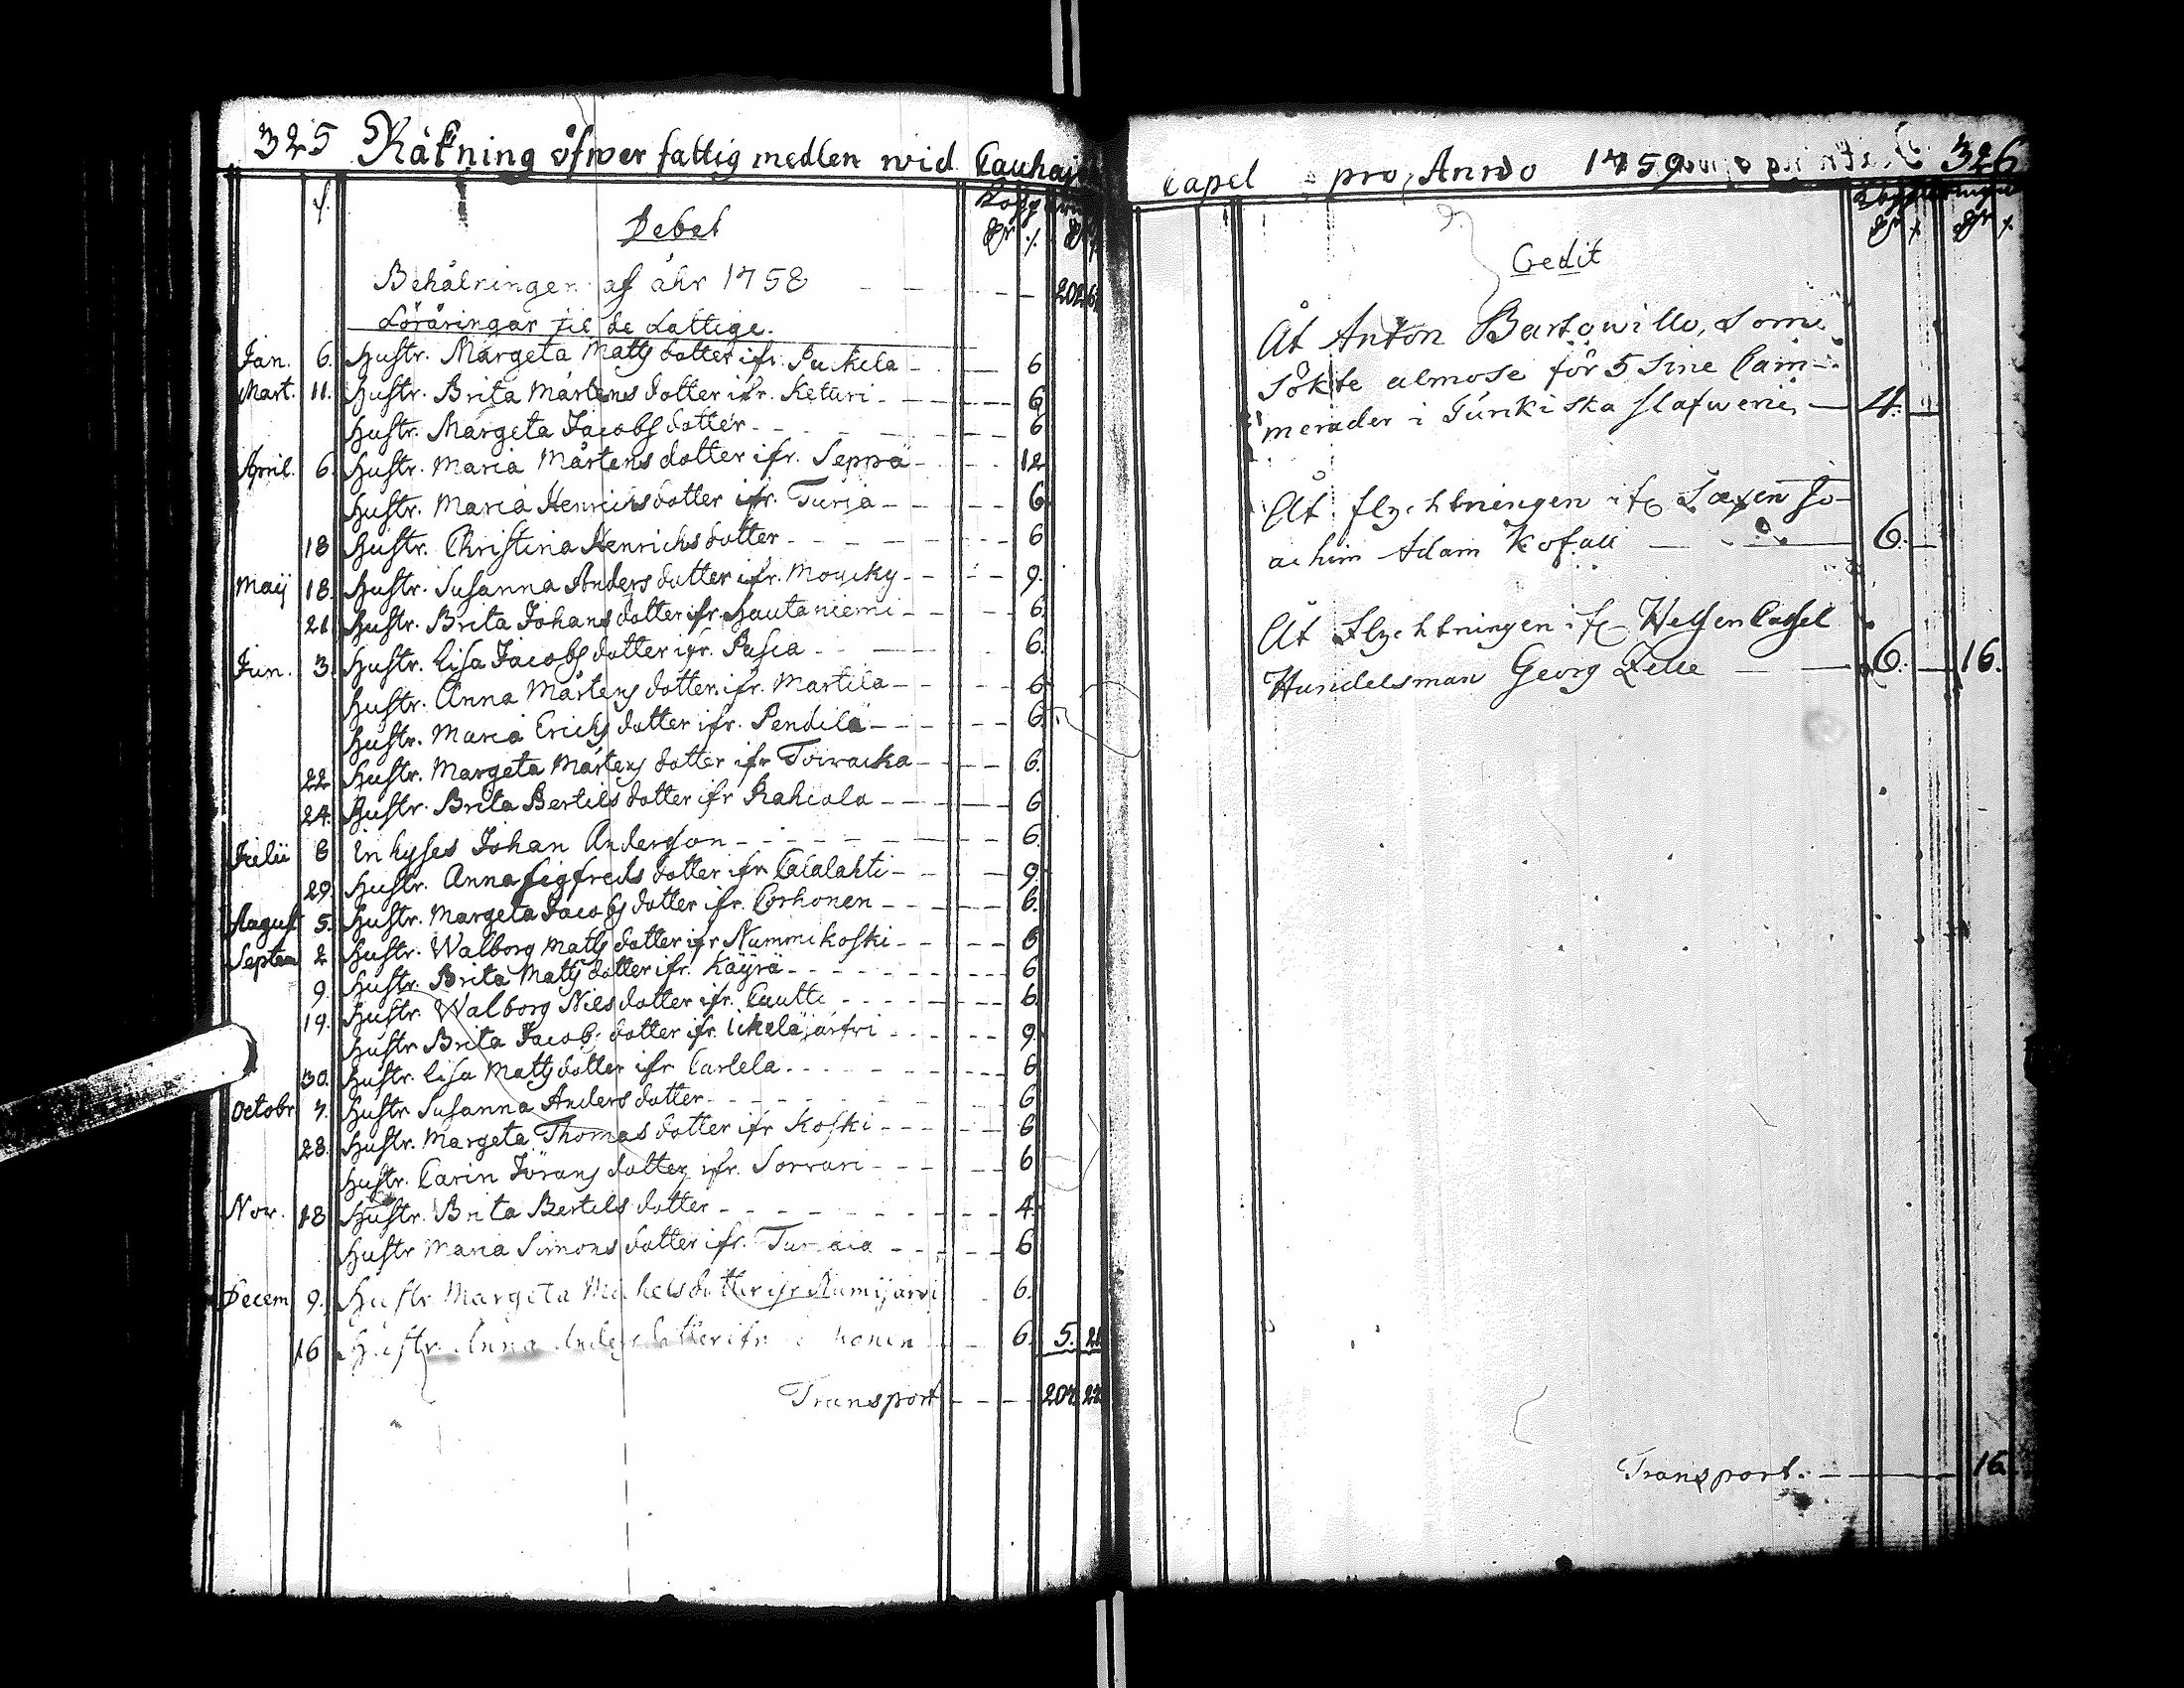 325 Räkning öfwer fattig medlen wid Cauhaj
Kopp
Debet
Behålningen af åhr 1758 202 6
Föräringar til de Fattige.
Jan. 6. Hustr. Margeta Matts dotter ifr. Puhela 6
Mart. 11. Hustr. Brita Mårtens dotter ifr. Keturi 6
Hustr. Margeta Jacobs dotter 6
April. 6. Hustr. Maria Mårtens dotter ifr. Seppä 12
Hustr. Maria Henrichsdotter ifr. Turja 6
18 Hustr. Christina Henrichsdotter 6
Maij 18. Hustr. Susanna Anders dotter ifr. 9.
21 Hustr. Brita Johans dotter ifr. Hautaniemi 6.
Jun. 3. Hustr. Lisa Jacobs dotter ifr. Pasea 6.
Hustr. Anna Mårtens dotter ifr. Martila 6
Hustr. Maria Erichs dotter ifr. Pendilä 6.
22 Hustr. Margeta Mårtens dotter ifr 6.
24. Hustr. Brita Bertils dotter ifr Rahiala 6
Julii 8 Inhyses Johan Andersson 6.
29. Hustr. Anna Sigfreds dotter ifr Caialahti 9.
August 5. Hustr. Margeta Jacobs dotter ifr. Corhonen 6.
Septem 2 Hustr. Walborg Matts dotter ifr Nummikoski 6
9. Hustr. Brita Matts dotter ifr. Käyrä 6
19. Hustr. Walborg Nils dotter ifr. Cautti 6.
Hustr Brita Jacobs dotter ifr. Ikeläjärfwi 9.
30. Hustr. Lisa Matts dotter ifr Carlela 6
Octobr 7. Hustr Susanna Anders dotter 6
28. Hustr. Margeta Thomas dotter ifr Koski 6
Hustr. Carin Jörans dotter ifr. Sorvari 6
Nov. 18 Hustr. Brita Bertils dotter 4.
Hustr Maria Simons dotter ifr. 6
Decem 9. Hustr Margeta Michels dotter ifr 6.
16 Hustr. Anna Anders dotter ifr 6. 5. 21
Transport 207 22
Capel pro Anno 1759 326
Credit
Åt Anton Bartowillo, Some
sökte almose för 5 sine Cam-
merader i Turkiska slafweriet 4.
Åt flychtningen ifr Saxen Jo-
achim Adam Kofall 6.
Åt Flychtningen ifr Hessen Cassel
Handelsman Georg Zelle 6. 16.
Transport. 16